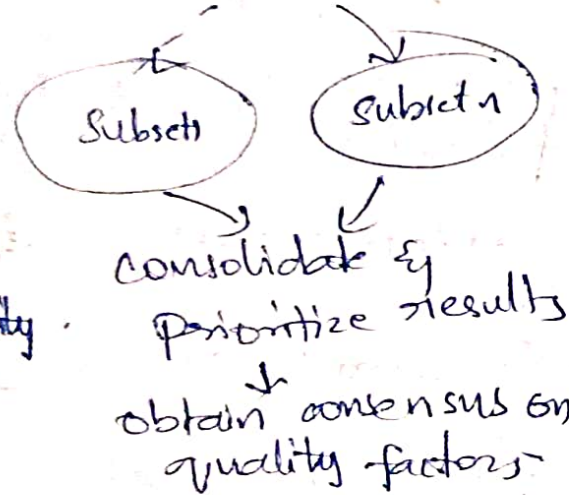 Subset1
Subset n
consolidate &
ity. prioritize results
↓
obtain consensus on
quality factors